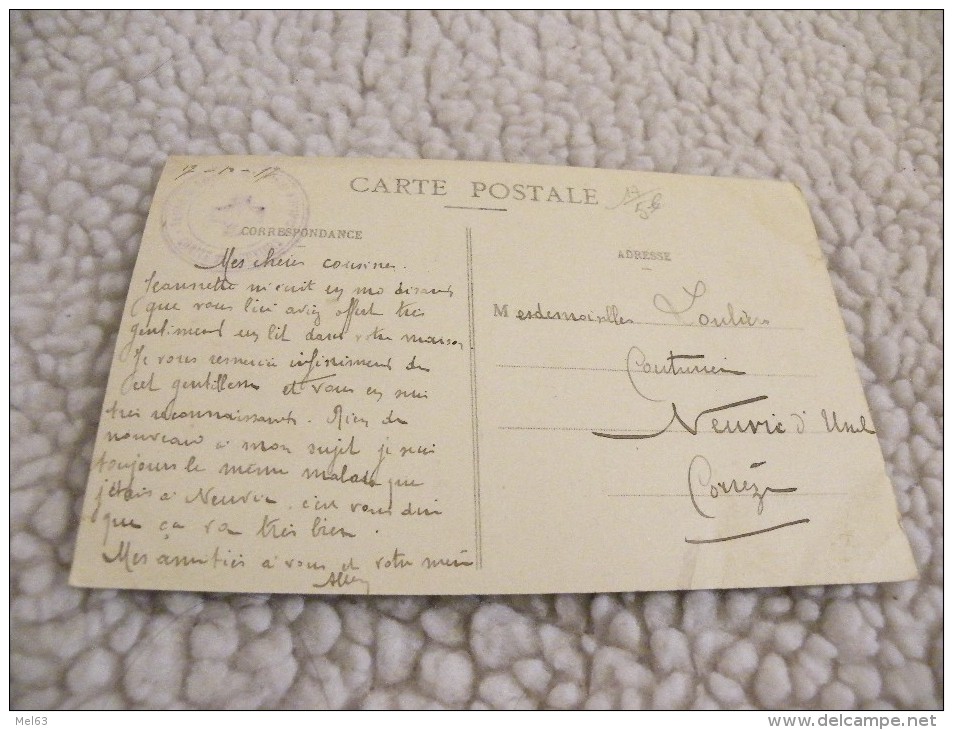 17-10-17
CARTE POSTALE
17/56
CORRESPONDANCE
Mes chères cousines.
Jeannette m'écrit en me disant
que vous lui aviez offert très
gentiment un lit dans votre maison
Je vous remercie infiniment de
cet gentillesse et vous en suis
très reconnaissants. Rien de
nouveau à mon sujet je suis
toujours le même malade que
j'étais à Neuvic c'est vous dire
que ça va très bien.
Mes amitiés à vous et votre mère
ADRESSE
Mesdemoiselles
Couturière
Neuvic d'Ussel
Corrèze
Mel63
www.delcampe.net